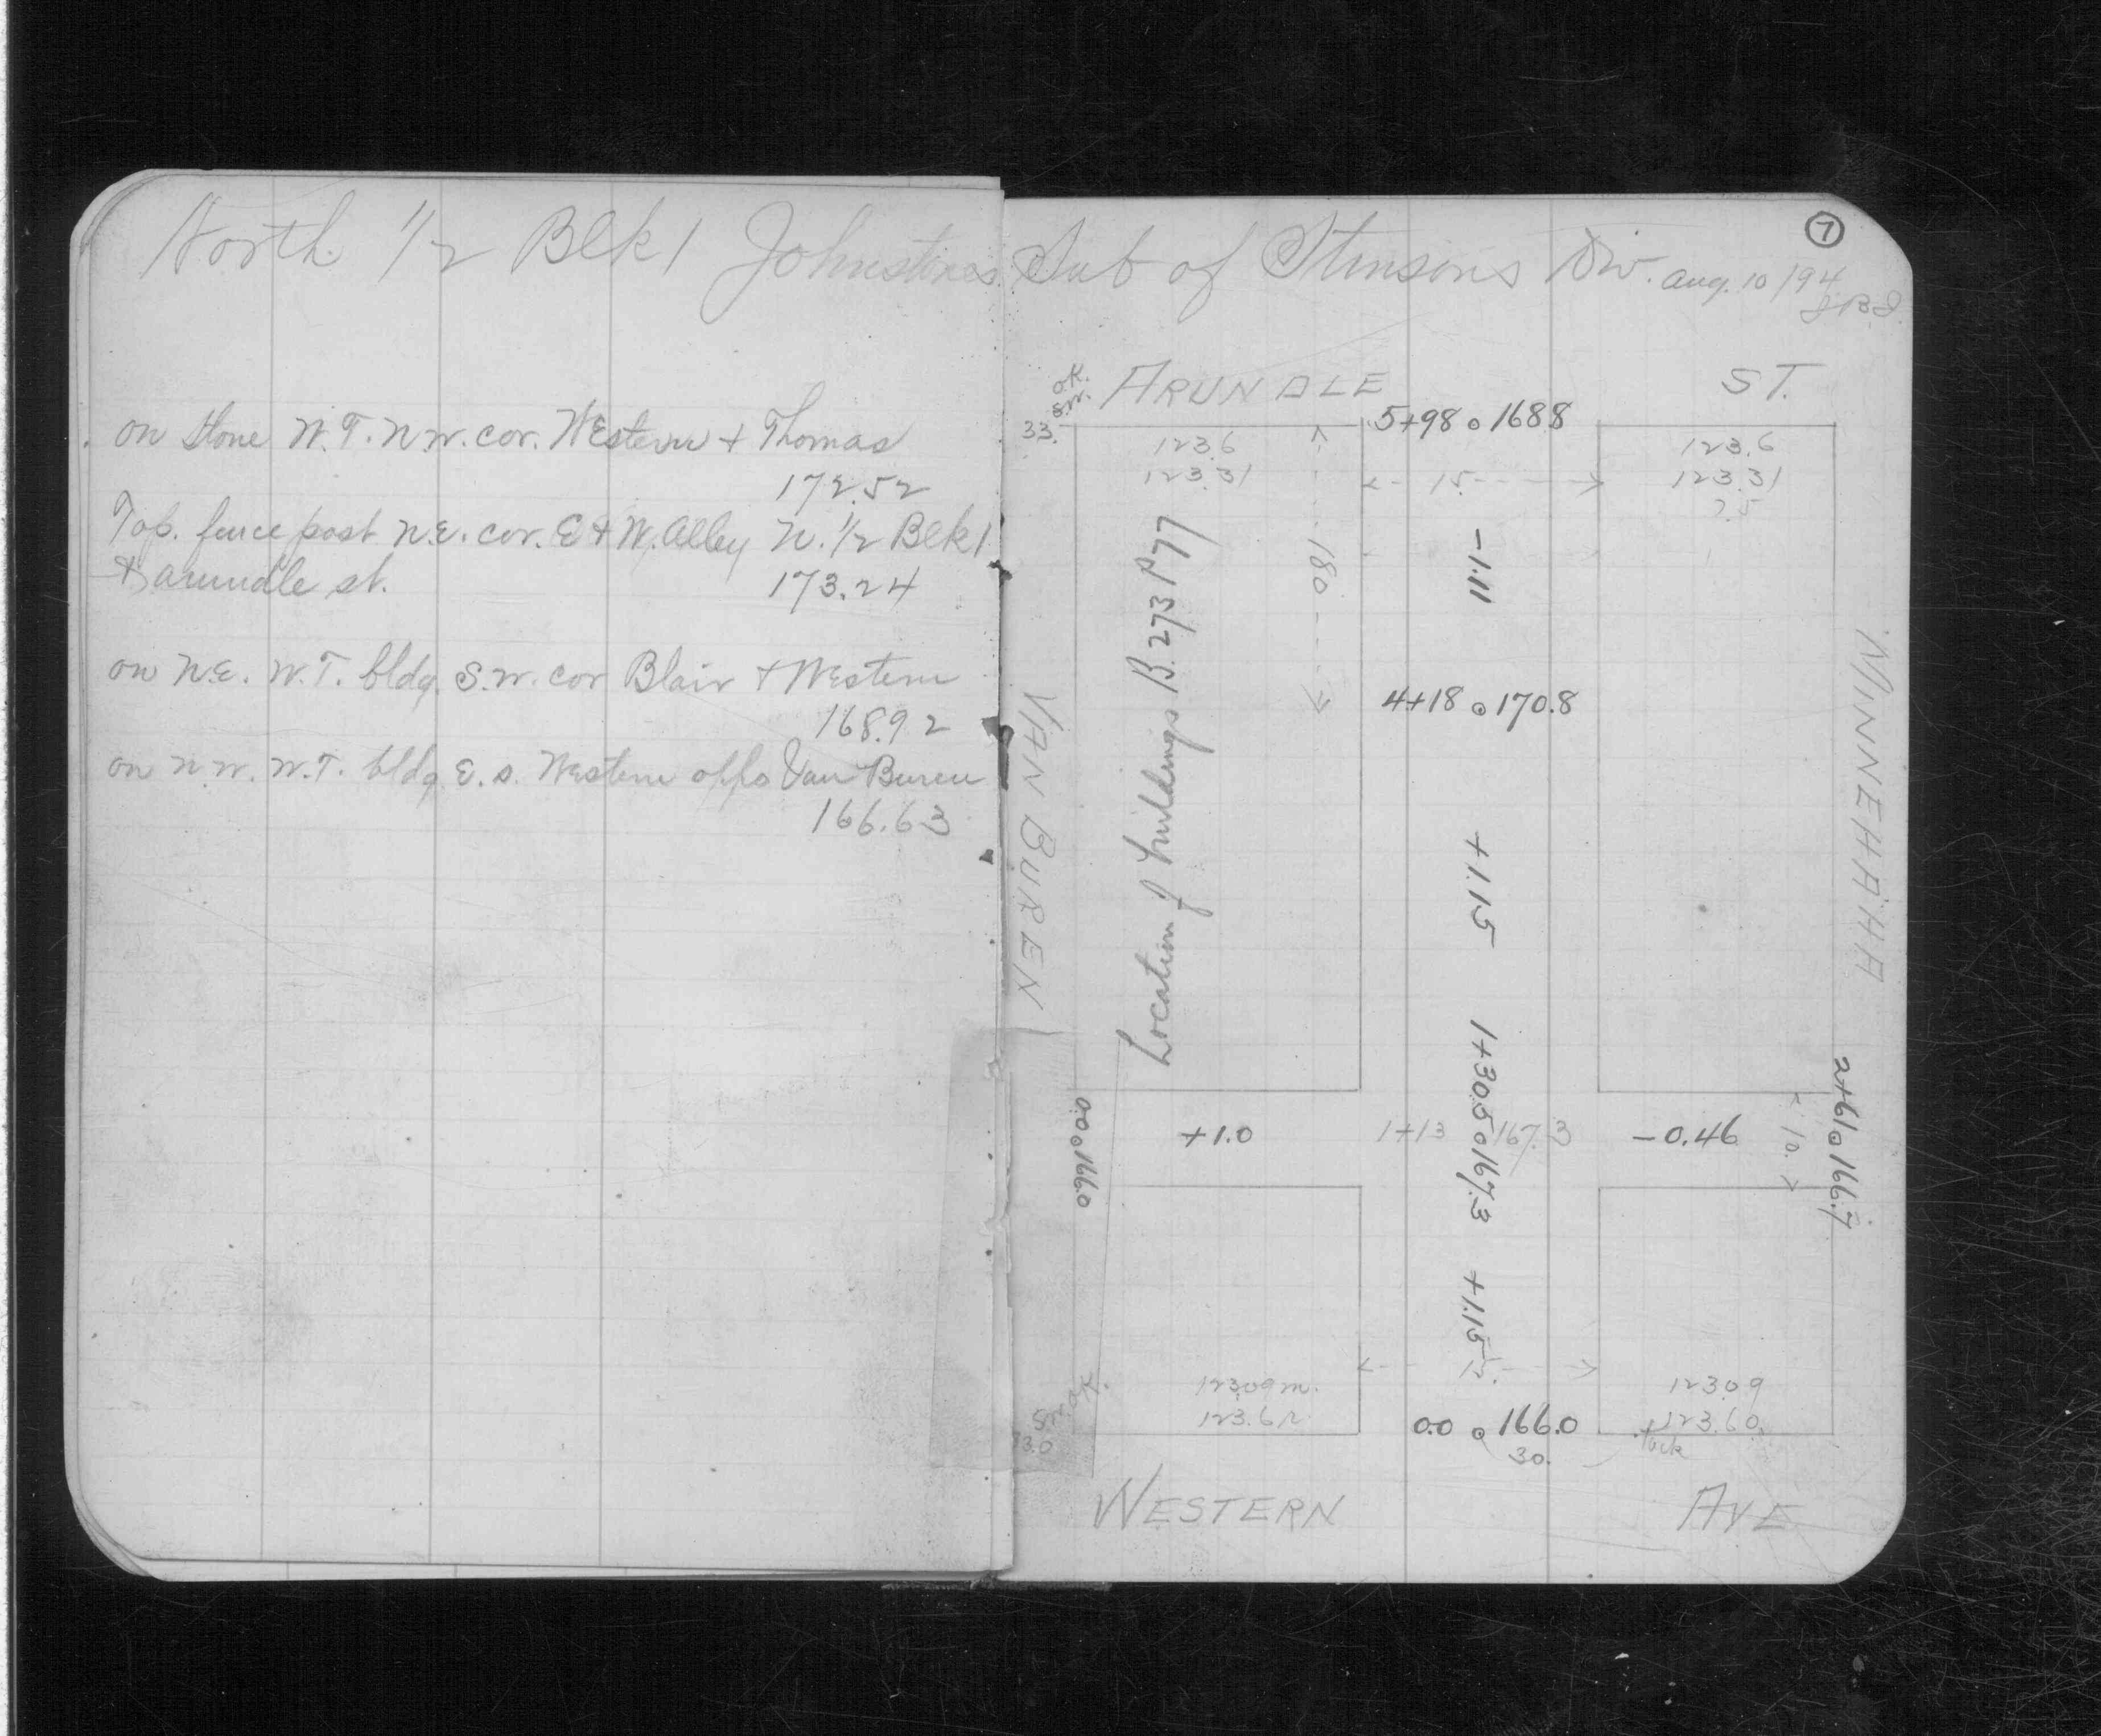 North 1/2 Blk 1 Johnstones Sub of Stinsons Div. Aug. 10/94
7
on stone W.T. N.W. cor. Western + Thomas
172.52
Top. fence post N.E. cor. E + W. Alley N. 1/2 Blk 1
+ arundle st.
173.24
on N.E. W.T. bldg. S.W. cor Blair + Western
168.92
on N.W. W.T. bldg E.s. Western opps Van Buren
166.63
O.K.
ARUNDLE ST.
33.
5+98 o 168.8
123.6
123.31
15.
123.6
123.31
180
-1.11
Location of buildings B. 273 P 77
4+18 o 170.8
VAN BUREN
MINNEHAHA
+1.15
1+30.5 o 167.3
0.0 o 166.0
+1.0
1+13 167.3
-0.46
10.
2+61 o 166.7
+1.15
15.
123.09 m.
123.6 R.
123.09
123.60
tack
O.K.
0.0 o 166.0
30.
WESTERN AVE